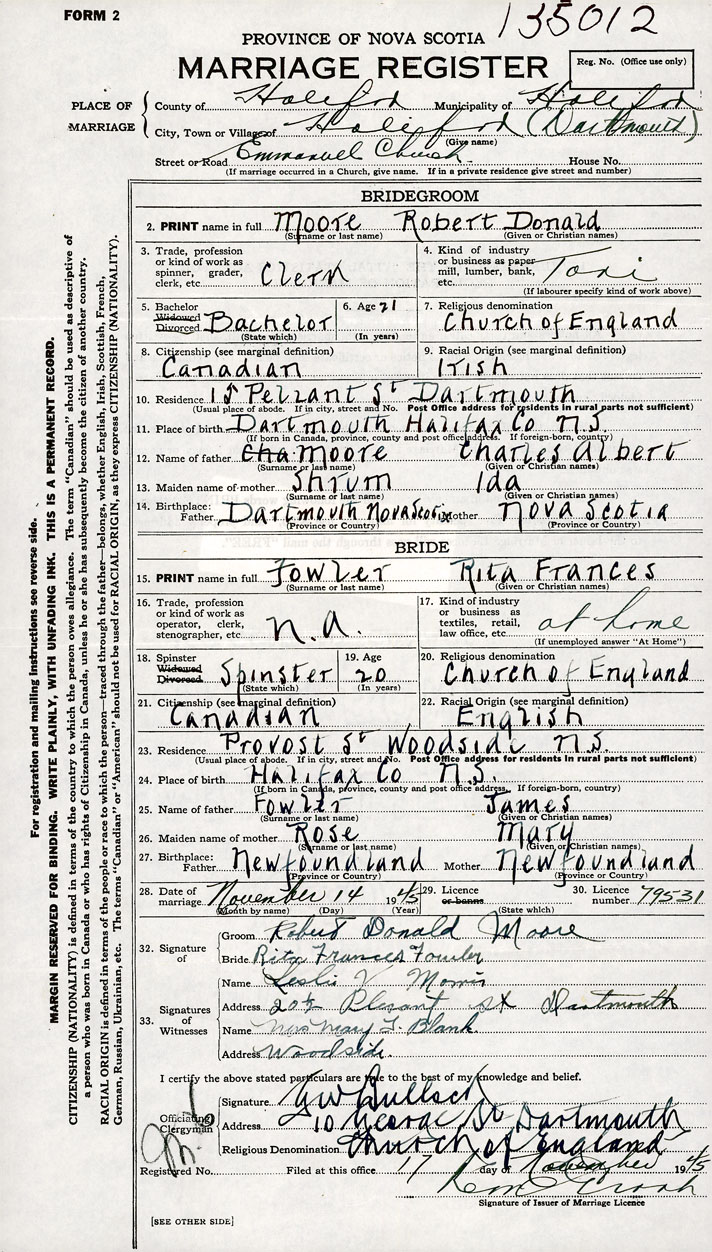 FORM 2
135012
PROVINCE OF NOVA SCOTIA
MARRIAGE REGISTER
Reg. No. (Office use only)
PLACE OF MARRIAGE
County of Halifax Municipality of Halifax
City, Town or Village of Halifax (Dartmouth)
(Give name)
Street or Road Emmanuel Church House No.
(If marriage occurred in a Church, give name. If in a private residence give street and number)
BRIDEGROOM
2. PRINT name in full Moore Robert Donald
(Surname or last name) (Given or Christian names)
3. Trade, profession or kind of work as spinner, grader, clerk, etc. Clerk
4. Kind of industry or business as paper mill, lumber, bank, etc. Taxi
(If labourer specify kind of work above)
5. Bachelor Widowed Divorced Bachelor
(State which)
6. Age 21
(In years)
7. Religious denomination
Church of England
8. Citizenship (see marginal definition)
Canadian
9. Racial Origin (see marginal definition)
Irish
10. Residence Plezant St Dartmouth
(Usual place of abode. If in city, street and No. Post Office address for residents in rural parts not sufficient)
11. Place of birth Dartmouth Halifax Co N.S.
(If born in Canada, province, county and post office address. If foreign-born, country)
12. Name of father Cha Moore Charles Albert
(Surname or last name) (Given or Christian names)
13. Maiden name of mother Shrum Ida
(Surname or last name) (Given or Christian names)
14. Birthplace: Father Dartmouth Nova Scotia Mother Nova Scotia
(Province or Country) (Province or Country)
BRIDE
15. PRINT name in full Fowler Rita Frances
(Surname or last name) (Given or Christian names)
16. Trade, profession or kind of work as operator, clerk, stenographer, etc. N.A.
17. Kind of industry or business as textiles, retail, law office, etc. at home
(If unemployed answer "At Home")
18. Spinster Widowed Divorced Spinster
(State which)
19. Age
20
(In years)
20. Religious denomination
Church of England
21. Citizenship (see marginal definition)
Canadian
22. Racial Origin (see marginal definition)
English
23. Residence Provost St Woodside N.S.
(Usual place of abode. If in city, street and No. Post Office address for residents in rural parts not sufficient)
24. Place of birth Halifax Co N.S.
(If born in Canada, province, county and post office address. If foreign-born, country)
25. Name of father Fowler James
(Surname or last name) (Given or Christian names)
26. Maiden name of mother Rose Mary
(Surname or last name) (Given or Christian names)
27. Birthplace: Father Newfoundland Mother Newfoundland
(Province or Country) (Province or Country)
28. Date of marriage November 14 1945
(Month by name) (Day) (Year)
29. Licence or banns
(State which)
30. Licence number 79531
32. Signature of
Groom Robert Donald Moore
Bride Rita Frances Fowler
33. Signatures of Witnesses
Name Leslie V Morris
Address Plesant st Dartmouth
Name Mrs Mary L. Blank
Address Woodside.
I certify the above stated particulars are true to the best of my knowledge and belief.
Officiating Clergyman
Signature GW Bullock
Address 10 George St Dartmouth
Religious Denomination Church of England
Registered No. Filed at this office 17 day of November 1945
Signature of Issuer of Marriage Licence
[SEE OTHER SIDE]
For registration and mailing instructions see reverse side.
MARGIN RESERVED FOR BINDING. WRITE PLAINLY, WITH UNFADING INK. THIS IS A PERMANENT RECORD.
CITIZENSHIP (NATIONALITY) is defined in terms of the country to which the person owes allegiance. The term "Canadian" should be used as descriptive of
a person who was born in Canada or who has rights of Citizenship in Canada, unless he or she has subsequently become the citizen of another country.
RACIAL ORIGIN is defined in terms of the people or race to which the person—traced through the father—belongs, whether English, Irish, Scottish, French,
German, Russian, Ukrainian, etc. The terms "Canadian" or "American" should not be used for RACIAL ORIGIN, as they express CITIZENSHIP (NATIONALITY).